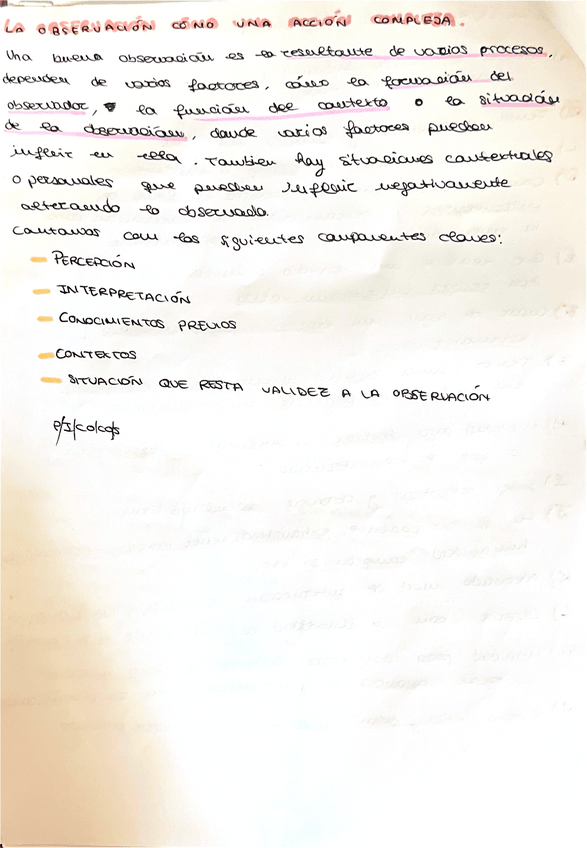 LA OBSERVACIÓN CÓMO UNA ACCIÓN COMPLEJA.
Una buena observación es la resultante de varios procesos,
dependen de varios factores, cómo la formación del
observador, la función del contexto o la situación
de la observación, donde varios factores pueden
influir en ella. Tambien hay situaciones contextuales
o personales que pueden influir negativamente
alterando lo observado.
Contamos con los siguientes componentes claves:
- PERCEPCIÓN
- INTERPRETACIÓN
- CONOCIMIENTOS PREVIOS
- CONTEXTOS
- SITUACIÓN QUE RESTA VALIDEZ A LA OBSERVACIÓN
P/I/CO/CO/S